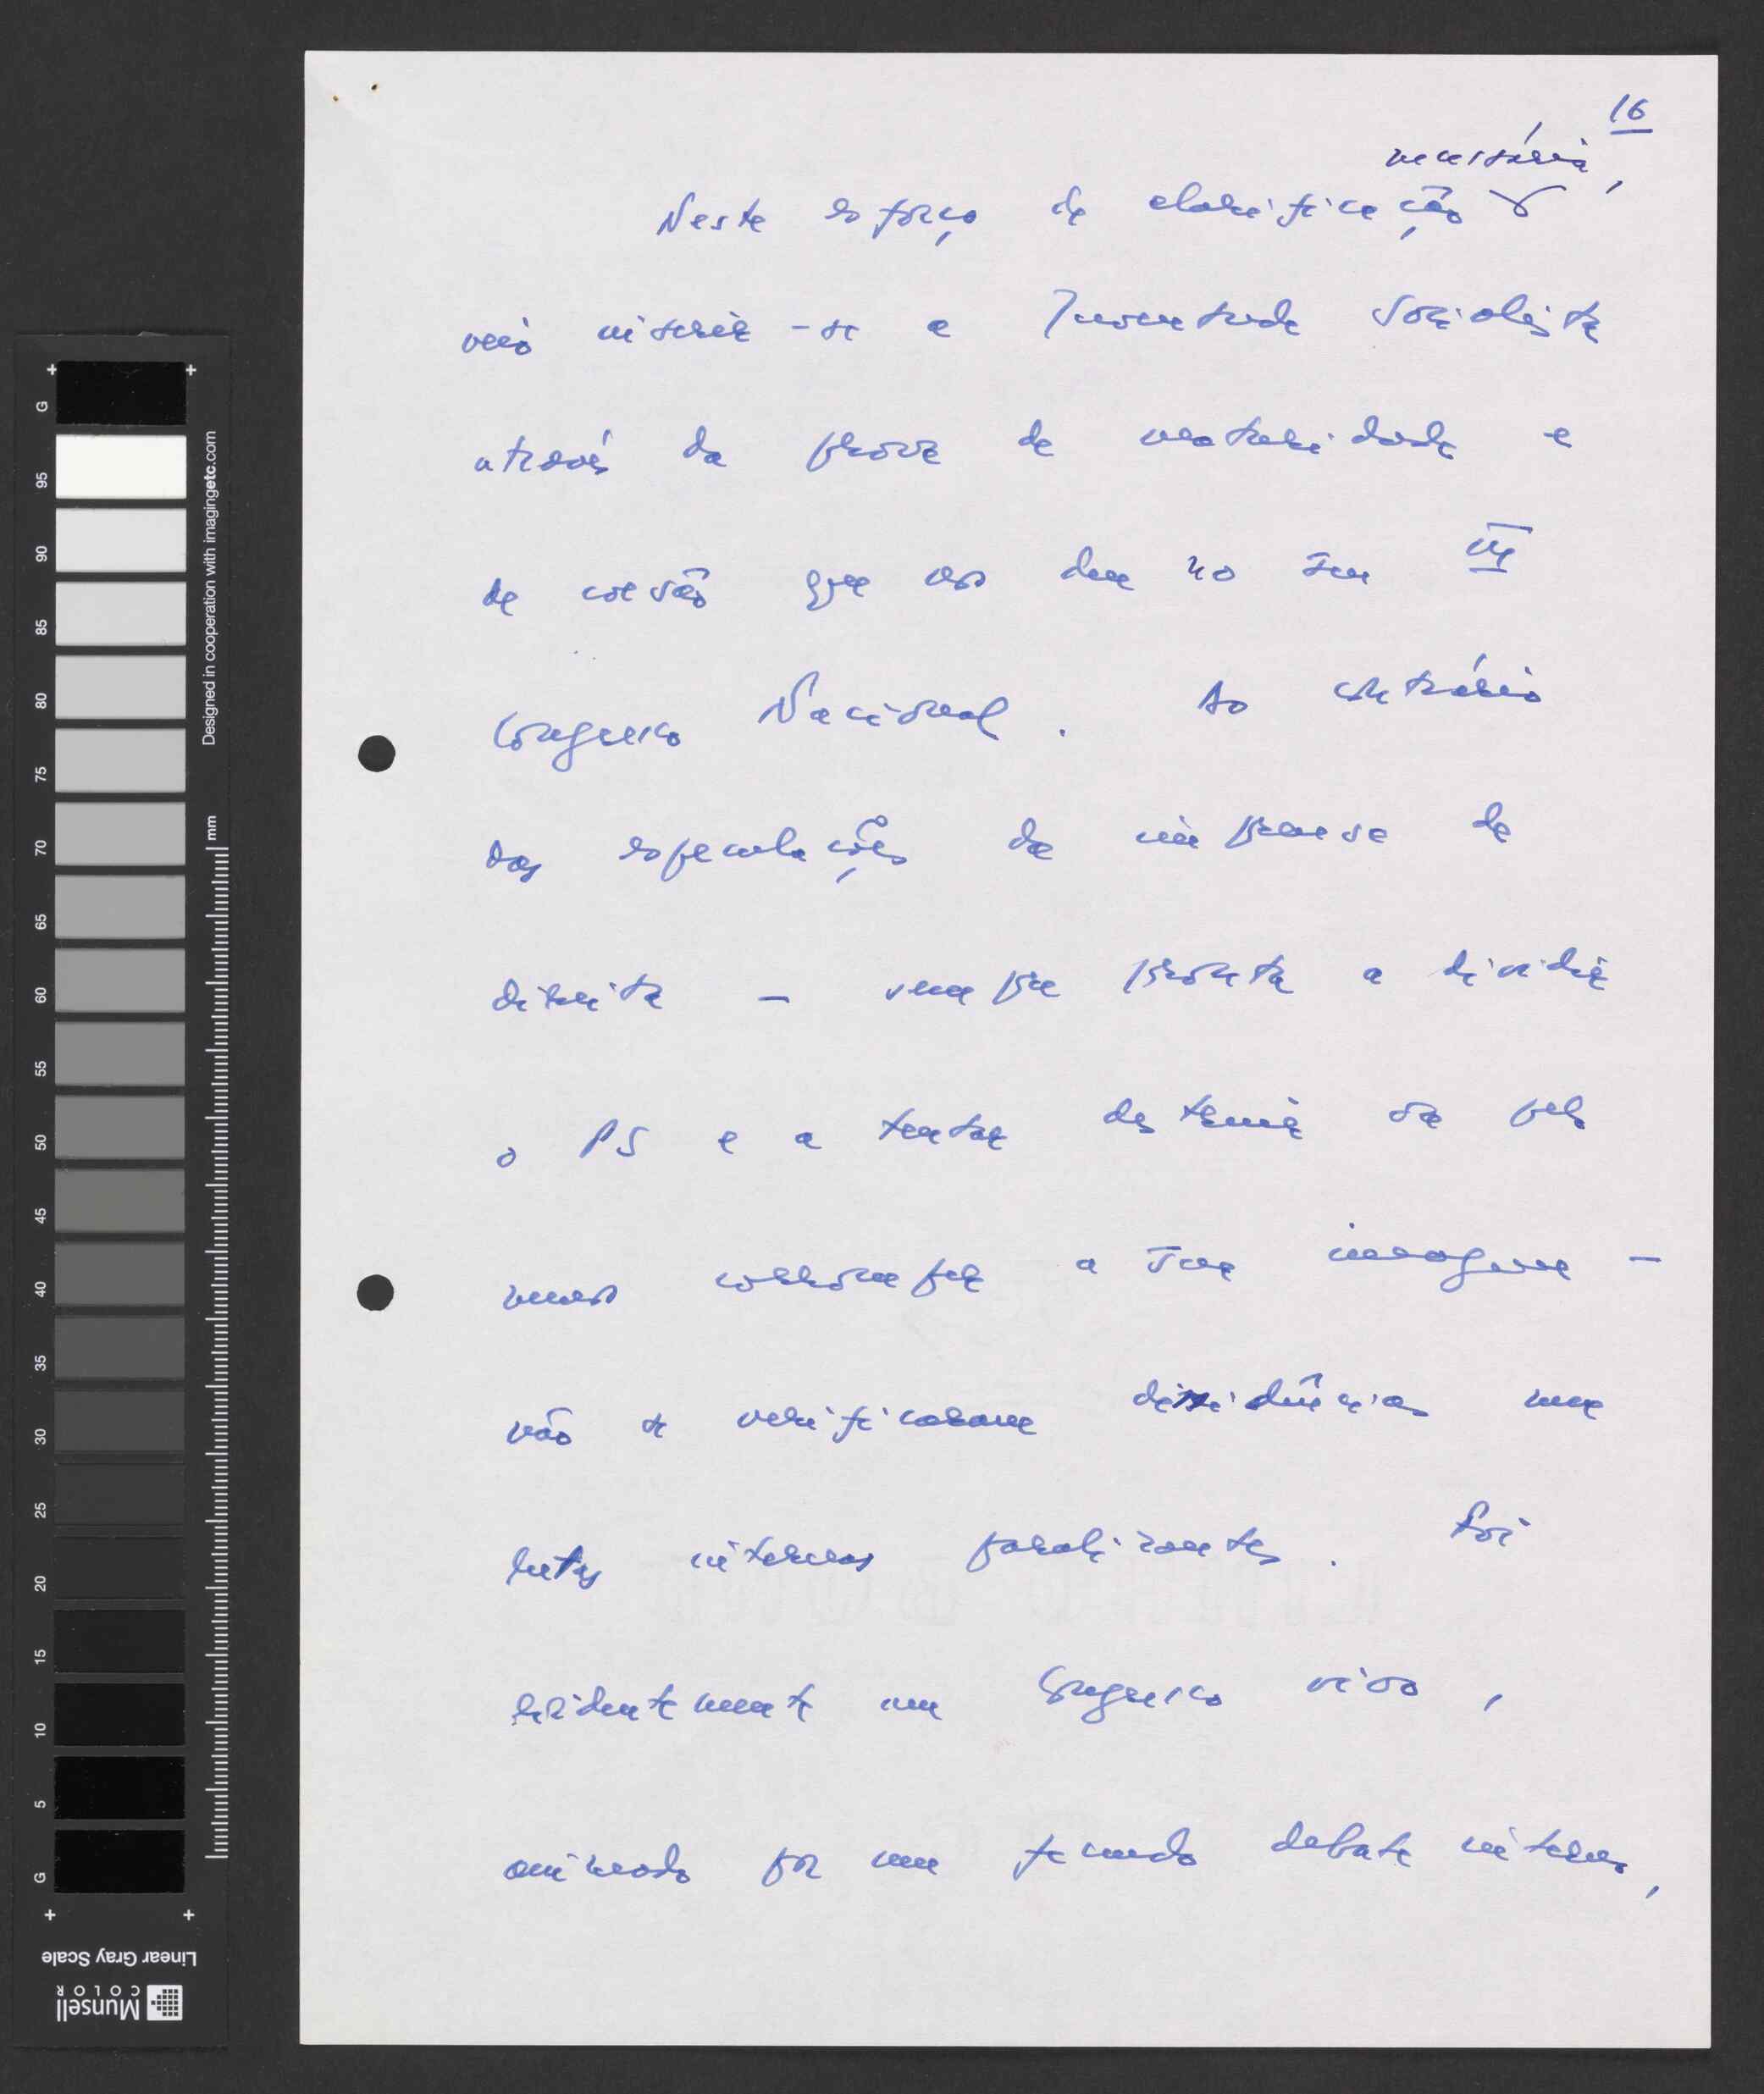 16
necessária,
Neste esforço de clarificação
veio inserir-se a Juventude Socialista
através da prova de maturidade e
de coesão que nos deu no seu
Congresso Nacional. Ao contrário
das especulações da imprensa de
direita – sempre pronta a dividir
o PS e a tentar destruir ou pelo
menos corromper a sua imagem –
não se verificaram dissidências nem
lutas internas paralizantes. Foi
evidentemente um Congresso vivo,
animado por um fecundo debate interno,
G
95
90
85
80
75
70
65
60
55
50
45
40
35
30
25
20
15
10
5
G
Designed in cooperation with imagingetc.com
mm
Linear Gray Scale
Munsell
COLOR